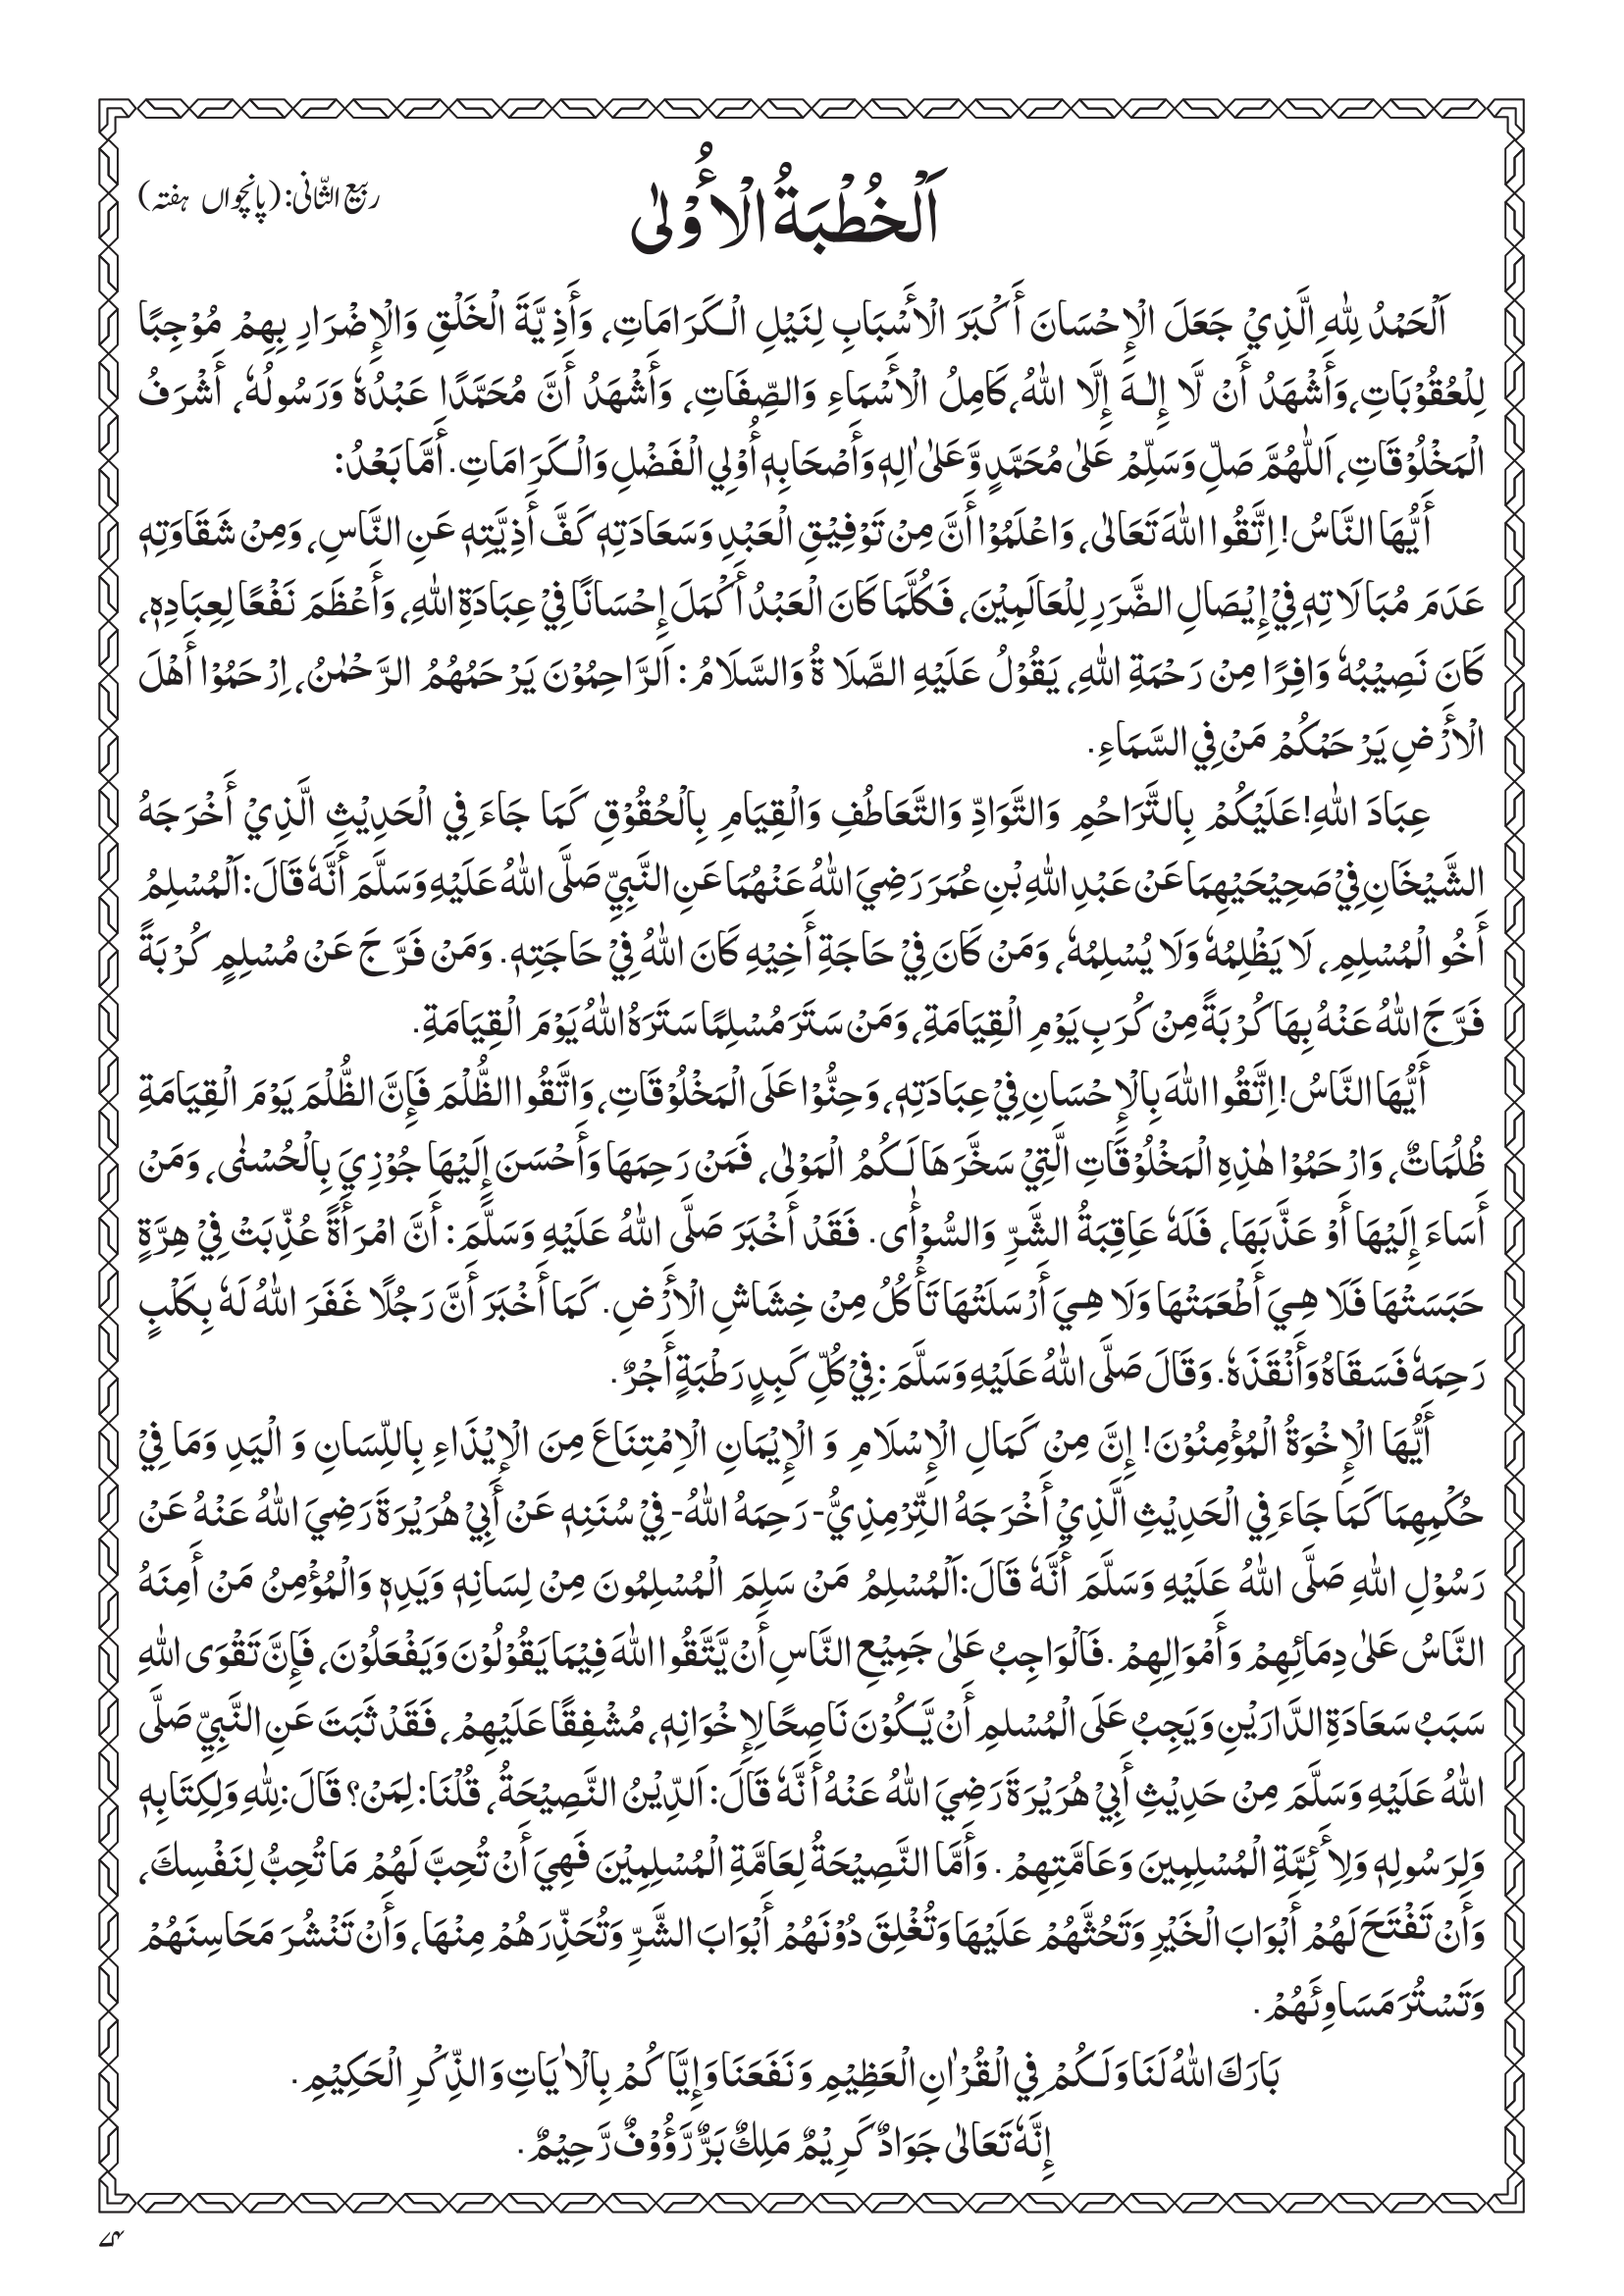 ربیع الثّانی: (پانچواں ہفتہ)
اَلْخُطْبَةُ الْأُوْلٰى
اَلْحَمْدُ لِلّٰهِ الَّذِيْ جَعَلَ الْإِحْسَانَ أَكْبَرَ الْأَسْبَابِ لِنَيْلِ الْكَرَامَاتِ، وَأَذِيَّةَ الْخَلْقِ وَالْإِضْرَارِ بِهِمْ مُوْجِبًا
لِلْعُقُوْبَاتِ، وَأَشْهَدُ أَنْ لَّا إِلٰـهَ إِلَّا اللهُ، كَامِلُ الْأَسْمَاءِ وَالصِّفَاتِ، وَأَشْهَدُ أَنَّ مُحَمَّدًا عَبْدُهٗ وَرَسُولُهٗ، أَشْرَفُ
الْمَخْلُوْقَاتِ، اَللّٰهُمَّ صَلِّ وَسَلِّمْ عَلٰى مُحَمَّدٍ وَّعَلٰى اٰلِهٖ وَأَصْحَابِهٖ أُوْلِي الْفَضْلِ وَالْكَرَامَاتِ. أَمَّا بَعْدُ:
أَيُّهَا النَّاسُ! اِتَّقُوا اللهَ تَعَالٰى، وَاعْلَمُوْا أَنَّ مِنْ تَوْفِيْقِ الْعَبْدِ وَسَعَادَتِهٖ كَفَّ أَذِيَّتِهٖ عَنِ النَّاسِ، وَمِنْ شَقَاوَتِهٖ
عَدَمَ مُبَالَاتِهٖ فِيْ إِيْصَالِ الضَّرَرِ لِلْعَالَمِيْنَ، فَكُلَّمَا كَانَ الْعَبْدُ أَكْمَلَ إِحْسَانًا فِيْ عِبَادَةِ اللهِ، وَأَعْظَمَ نَفْعًا لِعِبَادِهٖ،
كَانَ نَصِيْبُهٗ وَافِرًا مِنْ رَحْمَةِ اللهِ، يَقُوْلُ عَلَيْهِ الصَّلَاةُ وَالسَّلَامُ: اَلرَّاحِمُوْنَ يَرْحَمُهُمُ الرَّحْمٰنُ، اِرْحَمُوْا أَهْلَ
الْأَرْضِ يَرْحَمْكُمْ مَنْ فِي السَّمَاءِ.
عِبَادَ اللهِ! عَلَيْكُمْ بِالتَّرَاحُمِ وَالتَّوَادِّ وَالتَّعَاطُفِ وَالْقِيَامِ بِالْحُقُوْقِ كَمَا جَاءَ فِي الْحَدِيْثِ الَّذِيْ أَخْرَجَهُ
الشَّيْخَانِ فِيْ صَحِيْحَيْهِمَا عَنْ عَبْدِ اللهِ بْنِ عُمَرَ رَضِيَ اللهُ عَنْهُمَا عَنِ النَّبِيِّ صَلَّى اللهُ عَلَيْهِ وَسَلَّمَ أَنَّهٗ قَالَ: اَلْمُسْلِمُ
أَخُو الْمُسْلِمِ، لَا يَظْلِمُهٗ وَلَا يُسْلِمُهٗ، وَمَنْ كَانَ فِيْ حَاجَةِ أَخِيْهِ كَانَ اللهُ فِيْ حَاجَتِهٖ. وَمَنْ فَرَّجَ عَنْ مُسْلِمٍ كُرْبَةً
فَرَّجَ اللهُ عَنْهُ بِهَا كُرْبَةً مِنْ كُرَبِ يَوْمِ الْقِيَامَةِ، وَمَنْ سَتَرَ مُسْلِمًا سَتَرَهُ اللهُ يَوْمَ الْقِيَامَةِ.
أَيُّهَا النَّاسُ! اِتَّقُوا اللهَ بِالْإِحْسَانِ فِيْ عِبَادَتِهٖ، وَحِنُّوْا عَلَى الْمَخْلُوْقَاتِ، وَاتَّقُوا الظُّلْمَ فَإِنَّ الظُّلْمَ يَوْمَ الْقِيَامَةِ
ظُلُمَاتٌ، وَارْحَمُوْا هٰذِهِ الْمَخْلُوْقَاتِ الَّتِيْ سَخَّرَهَا لَكُمُ الْمَوْلٰى، فَمَنْ رَحِمَهَا وَأَحْسَنَ إِلَيْهَا جُوْزِيَ بِالْحُسْنٰى، وَمَنْ
أَسَاءَ إِلَيْهَا أَوْ عَذَّبَهَا، فَلَهٗ عَاقِبَةُ الشَّرِّ وَالسُّوْأٰى. فَقَدْ أَخْبَرَ صَلَّى اللهُ عَلَيْهِ وَسَلَّمَ: أَنَّ امْرَأَةً عُذِّبَتْ فِيْ هِرَّةٍ
حَبَسَتْهَا فَلَا هِيَ أَطْعَمَتْهَا وَلَا هِيَ أَرْسَلَتْهَا تَأْكُلُ مِنْ خِشَاشِ الْأَرْضِ. كَمَا أَخْبَرَ أَنَّ رَجُلًا غَفَرَ اللهُ لَهٗ بِكَلْبٍ
رَحِمَهٗ فَسَقَاهُ وَأَنْقَذَهٗ. وَقَالَ صَلَّى اللهُ عَلَيْهِ وَسَلَّمَ: فِيْ كُلِّ كَبِدٍ رَطْبَةٍ أَجْرٌ.
أَيُّهَا الْإِخْوَةُ الْمُؤْمِنُوْنَ! إِنَّ مِنْ كَمَالِ الْإِسْلَامِ وَ الْإِيْمَانِ الْاِمْتِنَاعَ مِنَ الْإِيْذَاءِ بِاللِّسَانِ وَ الْيَدِ وَمَا فِيْ
حُكْمِهِمَا كَمَا جَاءَ فِي الْحَدِيْثِ الَّذِيْ أَخْرَجَهُ التِّرْمِذِيُّ- رَحِمَهُ اللهُ- فِيْ سُنَنِهٖ عَنْ أَبِيْ هُرَيْرَةَ رَضِيَ اللهُ عَنْهُ عَنْ
رَسُوْلِ اللهِ صَلَّى اللهُ عَلَيْهِ وَسَلَّمَ أَنَّهٗ قَالَ: اَلْمُسْلِمُ مَنْ سَلِمَ الْمُسْلِمُونَ مِنْ لِسَانِهٖ وَيَدِهٖ وَالْمُؤْمِنُ مَنْ أَمِنَهُ
النَّاسُ عَلٰى دِمَائِهِمْ وَأَمْوَالِهِمْ. فَالْوَاجِبُ عَلٰى جَمِيْعِ النَّاسِ أَنْ يَّتَّقُوا اللهَ فِيْمَا يَقُوْلُوْنَ وَيَفْعَلُوْنَ، فَإِنَّ تَقْوَى اللهِ
سَبَبُ سَعَادَةِ الدَّارَيْنِ وَيَجِبُ عَلَى الْمُسْلمِ أَنْ يَّكُوْنَ نَاصِحًا لِإِخْوَانِهٖ، مُشْفِقًا عَلَيْهِمْ، فَقَدْ ثَبَتَ عَنِ النَّبِيِّ صَلَّى
اللهُ عَلَيْهِ وَسَلَّمَ مِنْ حَدِيْثِ أَبِيْ هُرَيْرَةَ رَضِيَ اللهُ عَنْهُ أَنَّهٗ قَالَ: اَلدِّيْنُ النَّصِيْحَةُ، قُلْنَا: لِمَنْ؟ قَالَ: لِلّٰهِ وَلِكِتَابِهٖ
وَلِرَسُولِهٖ وَلِأَئِمَّةِ الْمُسْلِمِينَ وَعَامَّتِهِمْ. وَأَمَّا النَّصِيْحَةُ لِعَامَّةِ الْمُسْلِمِيْنَ فَهِيَ أَنْ تُحِبَّ لَهُمْ مَا تُحِبُّ لِنَفْسِكَ،
وَأَنْ تَفْتَحَ لَهُمْ أَبْوَابَ الْخَيْرِ وَتَحُثَّهُمْ عَلَيْهَا وَتُغْلِقَ دُوْنَهُمْ أَبْوَابَ الشَّرِّ وَتُحَذِّرَهُمْ مِنْهَا، وَأَنْ تَنْشُرَ مَحَاسِنَهُمْ
وَتَسْتُرَ مَسَاوِئَهُمْ.
بَارَكَ اللهُ لَنَا وَلَكُمْ فِي الْقُرْاٰنِ الْعَظِيْمِ وَنَفَعَنَا وَإِيَّاكُمْ بِالْاٰيَاتِ وَالذِّكْرِ الْحَكِيْمِ.
إِنَّهٗ تَعَالٰى جَوَادٌ كَرِيْمٌ مَلِكٌ بَرٌّ رَّؤُوْفٌ رَّحِيْمٌ.